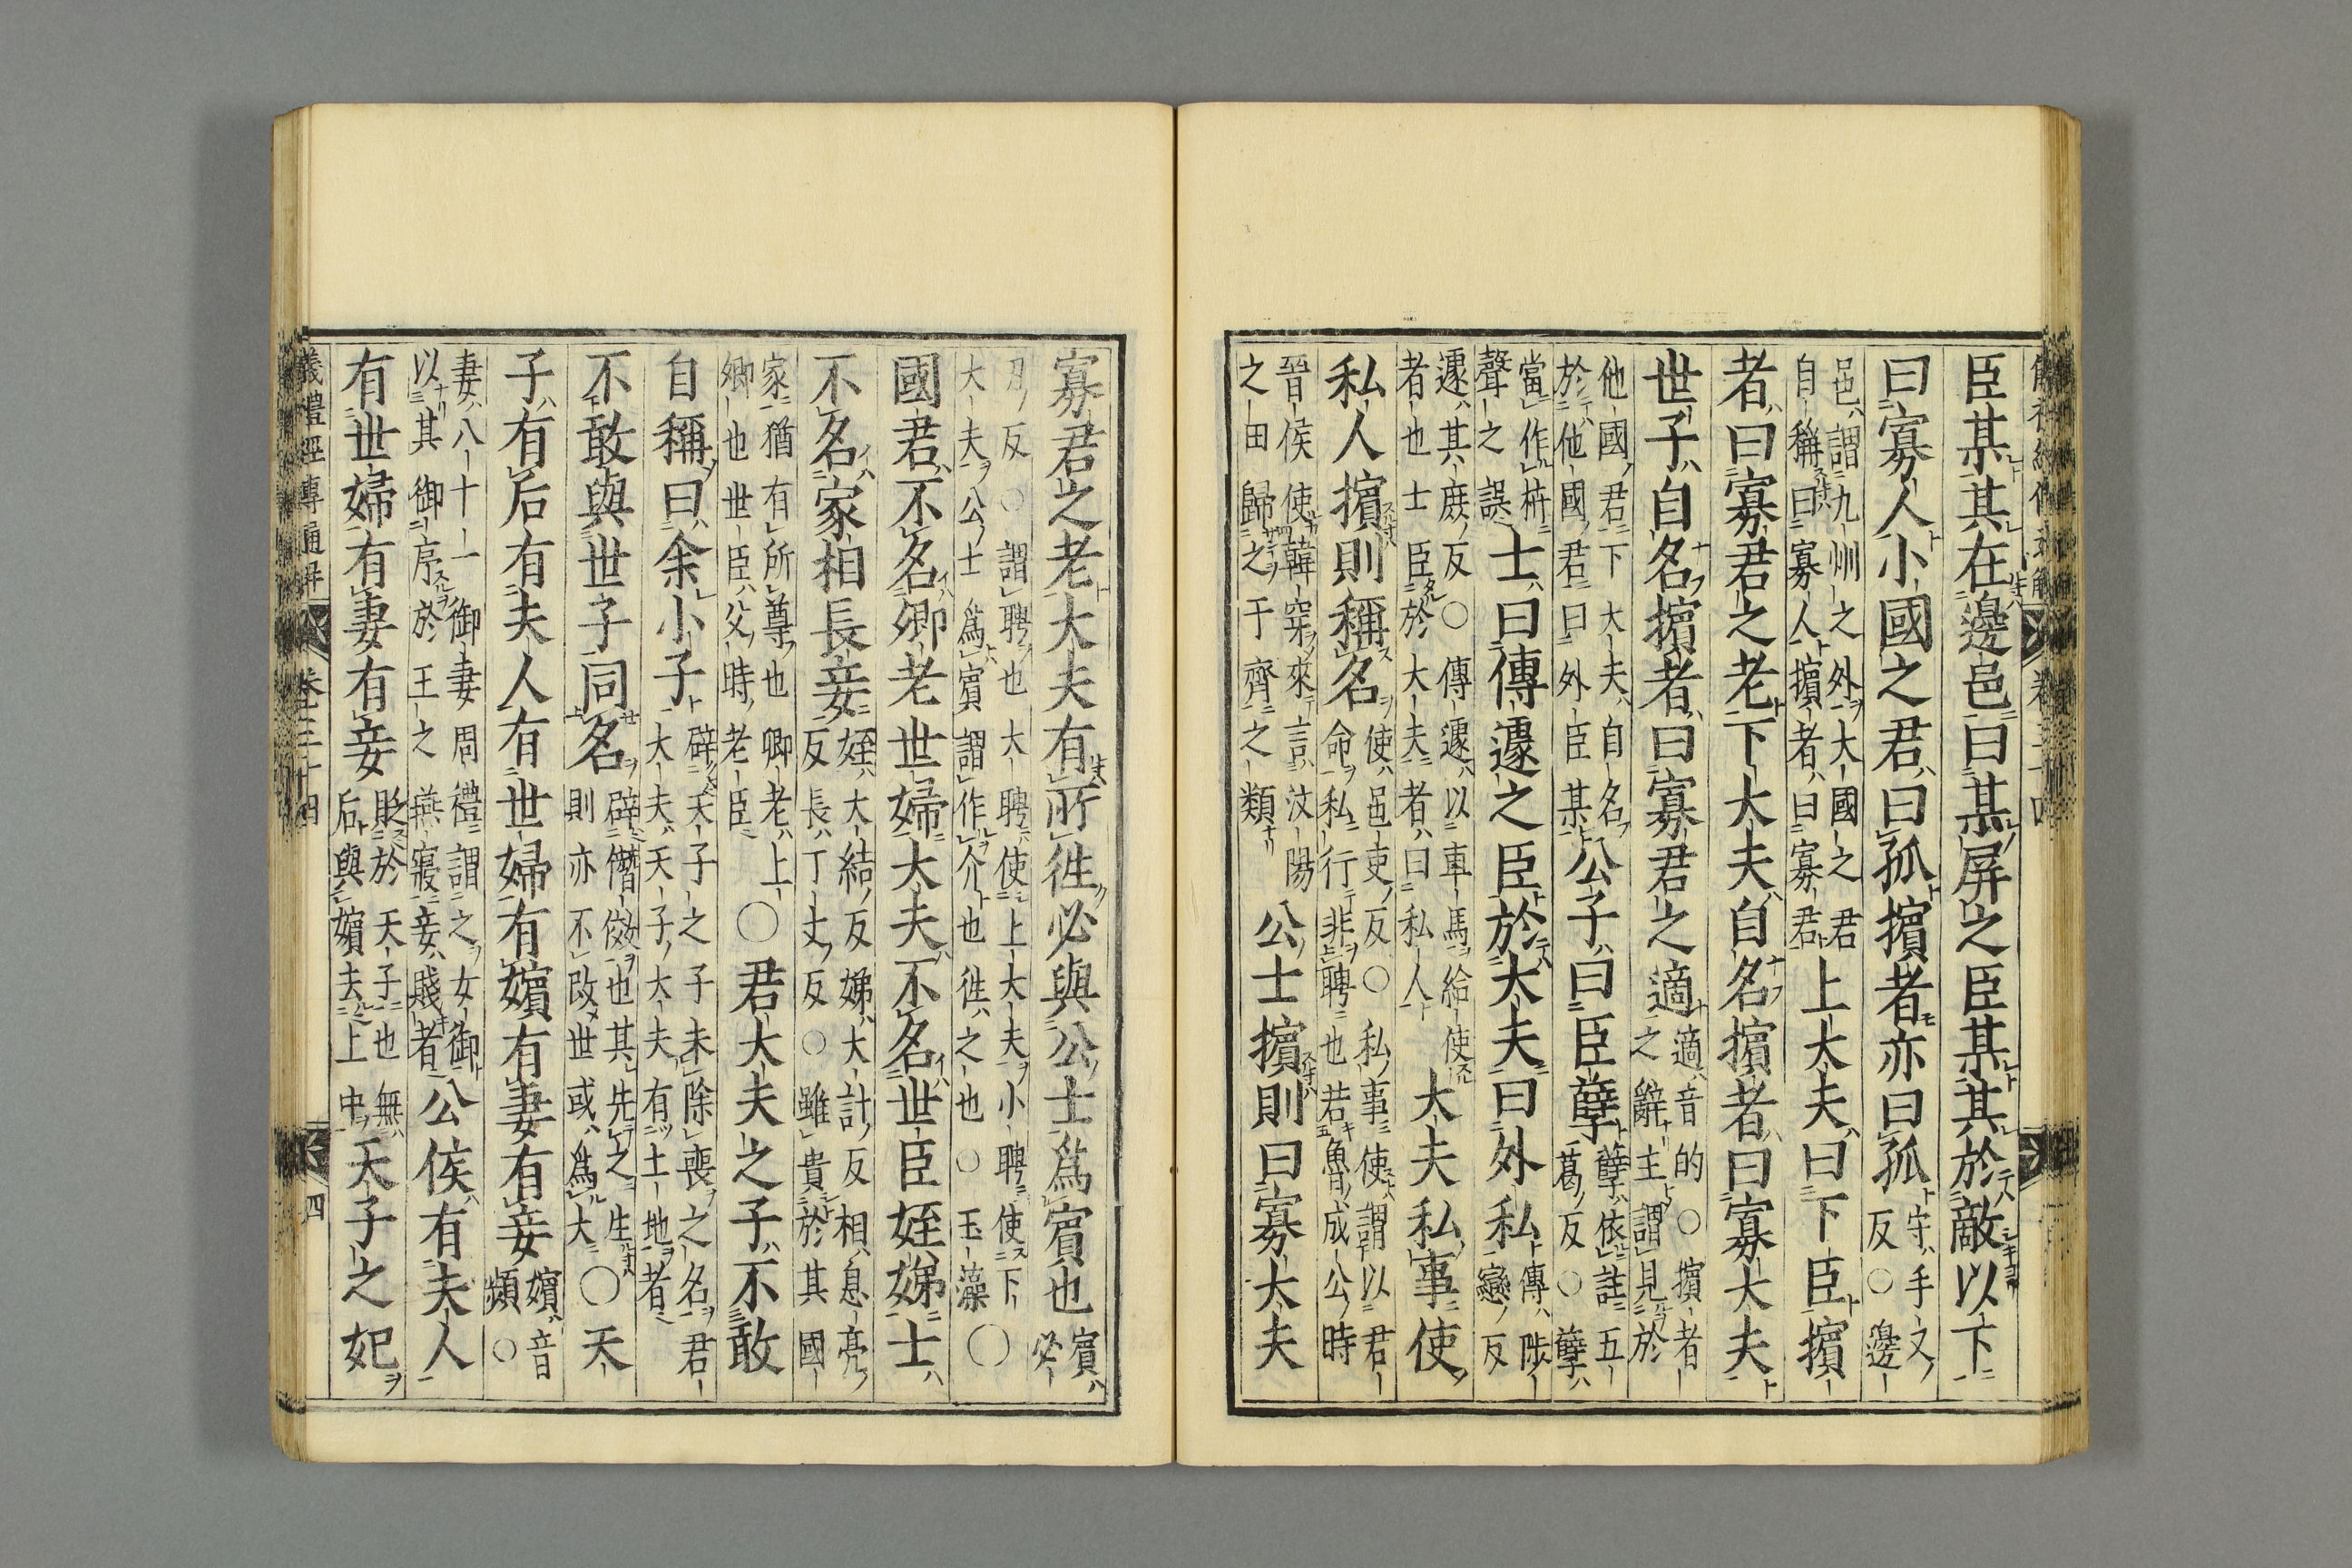 臣某其在邊邑曰某屏之臣某其於敵以下
曰寡人小國之君曰孤擯者亦曰孤守手又反○邊
邑謂九州之外大國之君自稱曰寡人擯者曰寡君上大夫曰下臣擯
者曰寡君之老下大夫自名擯者曰寡大夫
世子自名擯者曰寡君之適適音的○擯者之辭主謂見於
他國君下大夫自名於他國君曰外臣某公子曰臣孽孽依註五葛反○孽
當作枿聲之誤士曰傳遽之臣於大夫曰外私傳陟戀反
遽其庶反○傳遽以車馬給使者也士臣於大夫者曰私人大夫私事使
私人擯則稱名使色吏反○私事使謂以君命私行非聘也若魯成公時
晉侯使韓穿來言汶陽之田歸之于齊之類公士擯則曰寡大夫
寡君之老大夫有所徃必與公士爲賓也賓必
刃反○謂聘也大聘使上大夫小聘使下大夫公士爲賓謂作介也徃之也○玉藻○
國君不名卿老世婦大夫不名世臣姪娣士
不名家相長妾姪大結反娣大計反相息亮反長丁丈反○雖貴於其國
家猶有所尊也卿老上卿也世臣父時老臣○君大夫之子不敢
自稱曰余小子辟天子之子未除喪之名君大夫天子大夫有土地者
不敢與世子同名辟僭傚也其先之生則亦不改世或爲大○天
子有后有夫人有世婦有嬪有妻有妾嬪音頻○
妻八十一御妻周禮謂之女御以其御序於王之燕寢妾賤者公侯有夫人
有世婦有妻有妾貶於天子也無后與嬪去上中天子之妃
儀禮經傳通解 卷三十四 四